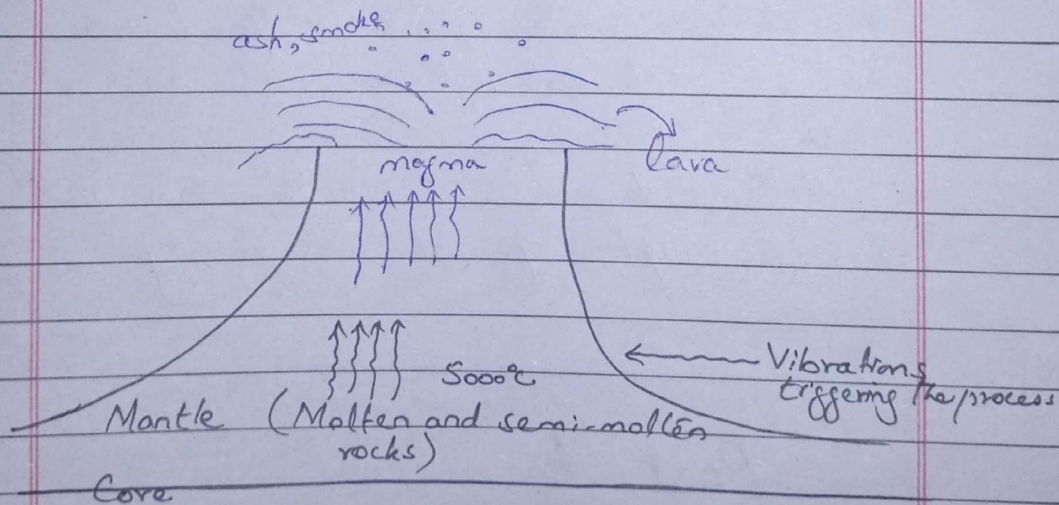 ash, smoke
magma
lava
5000°C
Vibrations
triggering the process
Mantle (Molten and semi-molten
rocks)
Core